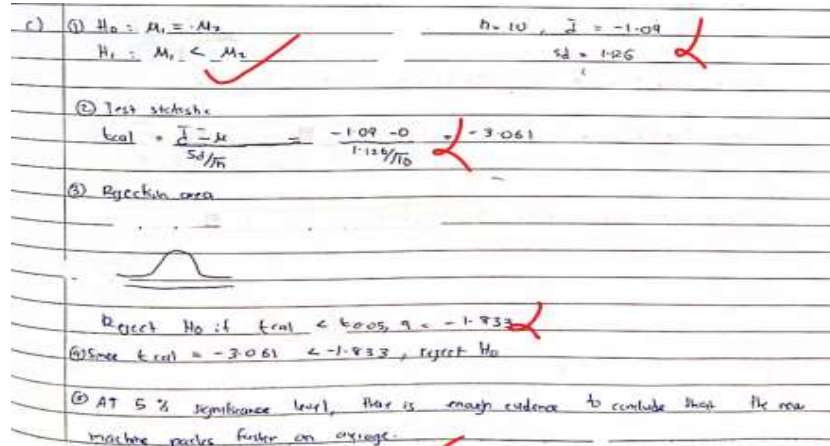 c) ① H₀ : μ₁ = μ₂ n = 10 , d̄ = -1.09
H₁ : μ₁ < μ₂ sd = 1.126
② Test statistic
tcal = d̄ - μ / Sd/√n = -1.09 - 0 / 1.126/√10 = -3.061
③ Rejection area
Reject H₀ if tcal < t0.05, 9 = -1.833
④ Since tcal = -3.061 < -1.833 , reject H₀
⑤ AT 5 % significance level, there is enough evidence to conclude that the new
machine packs faster on average.